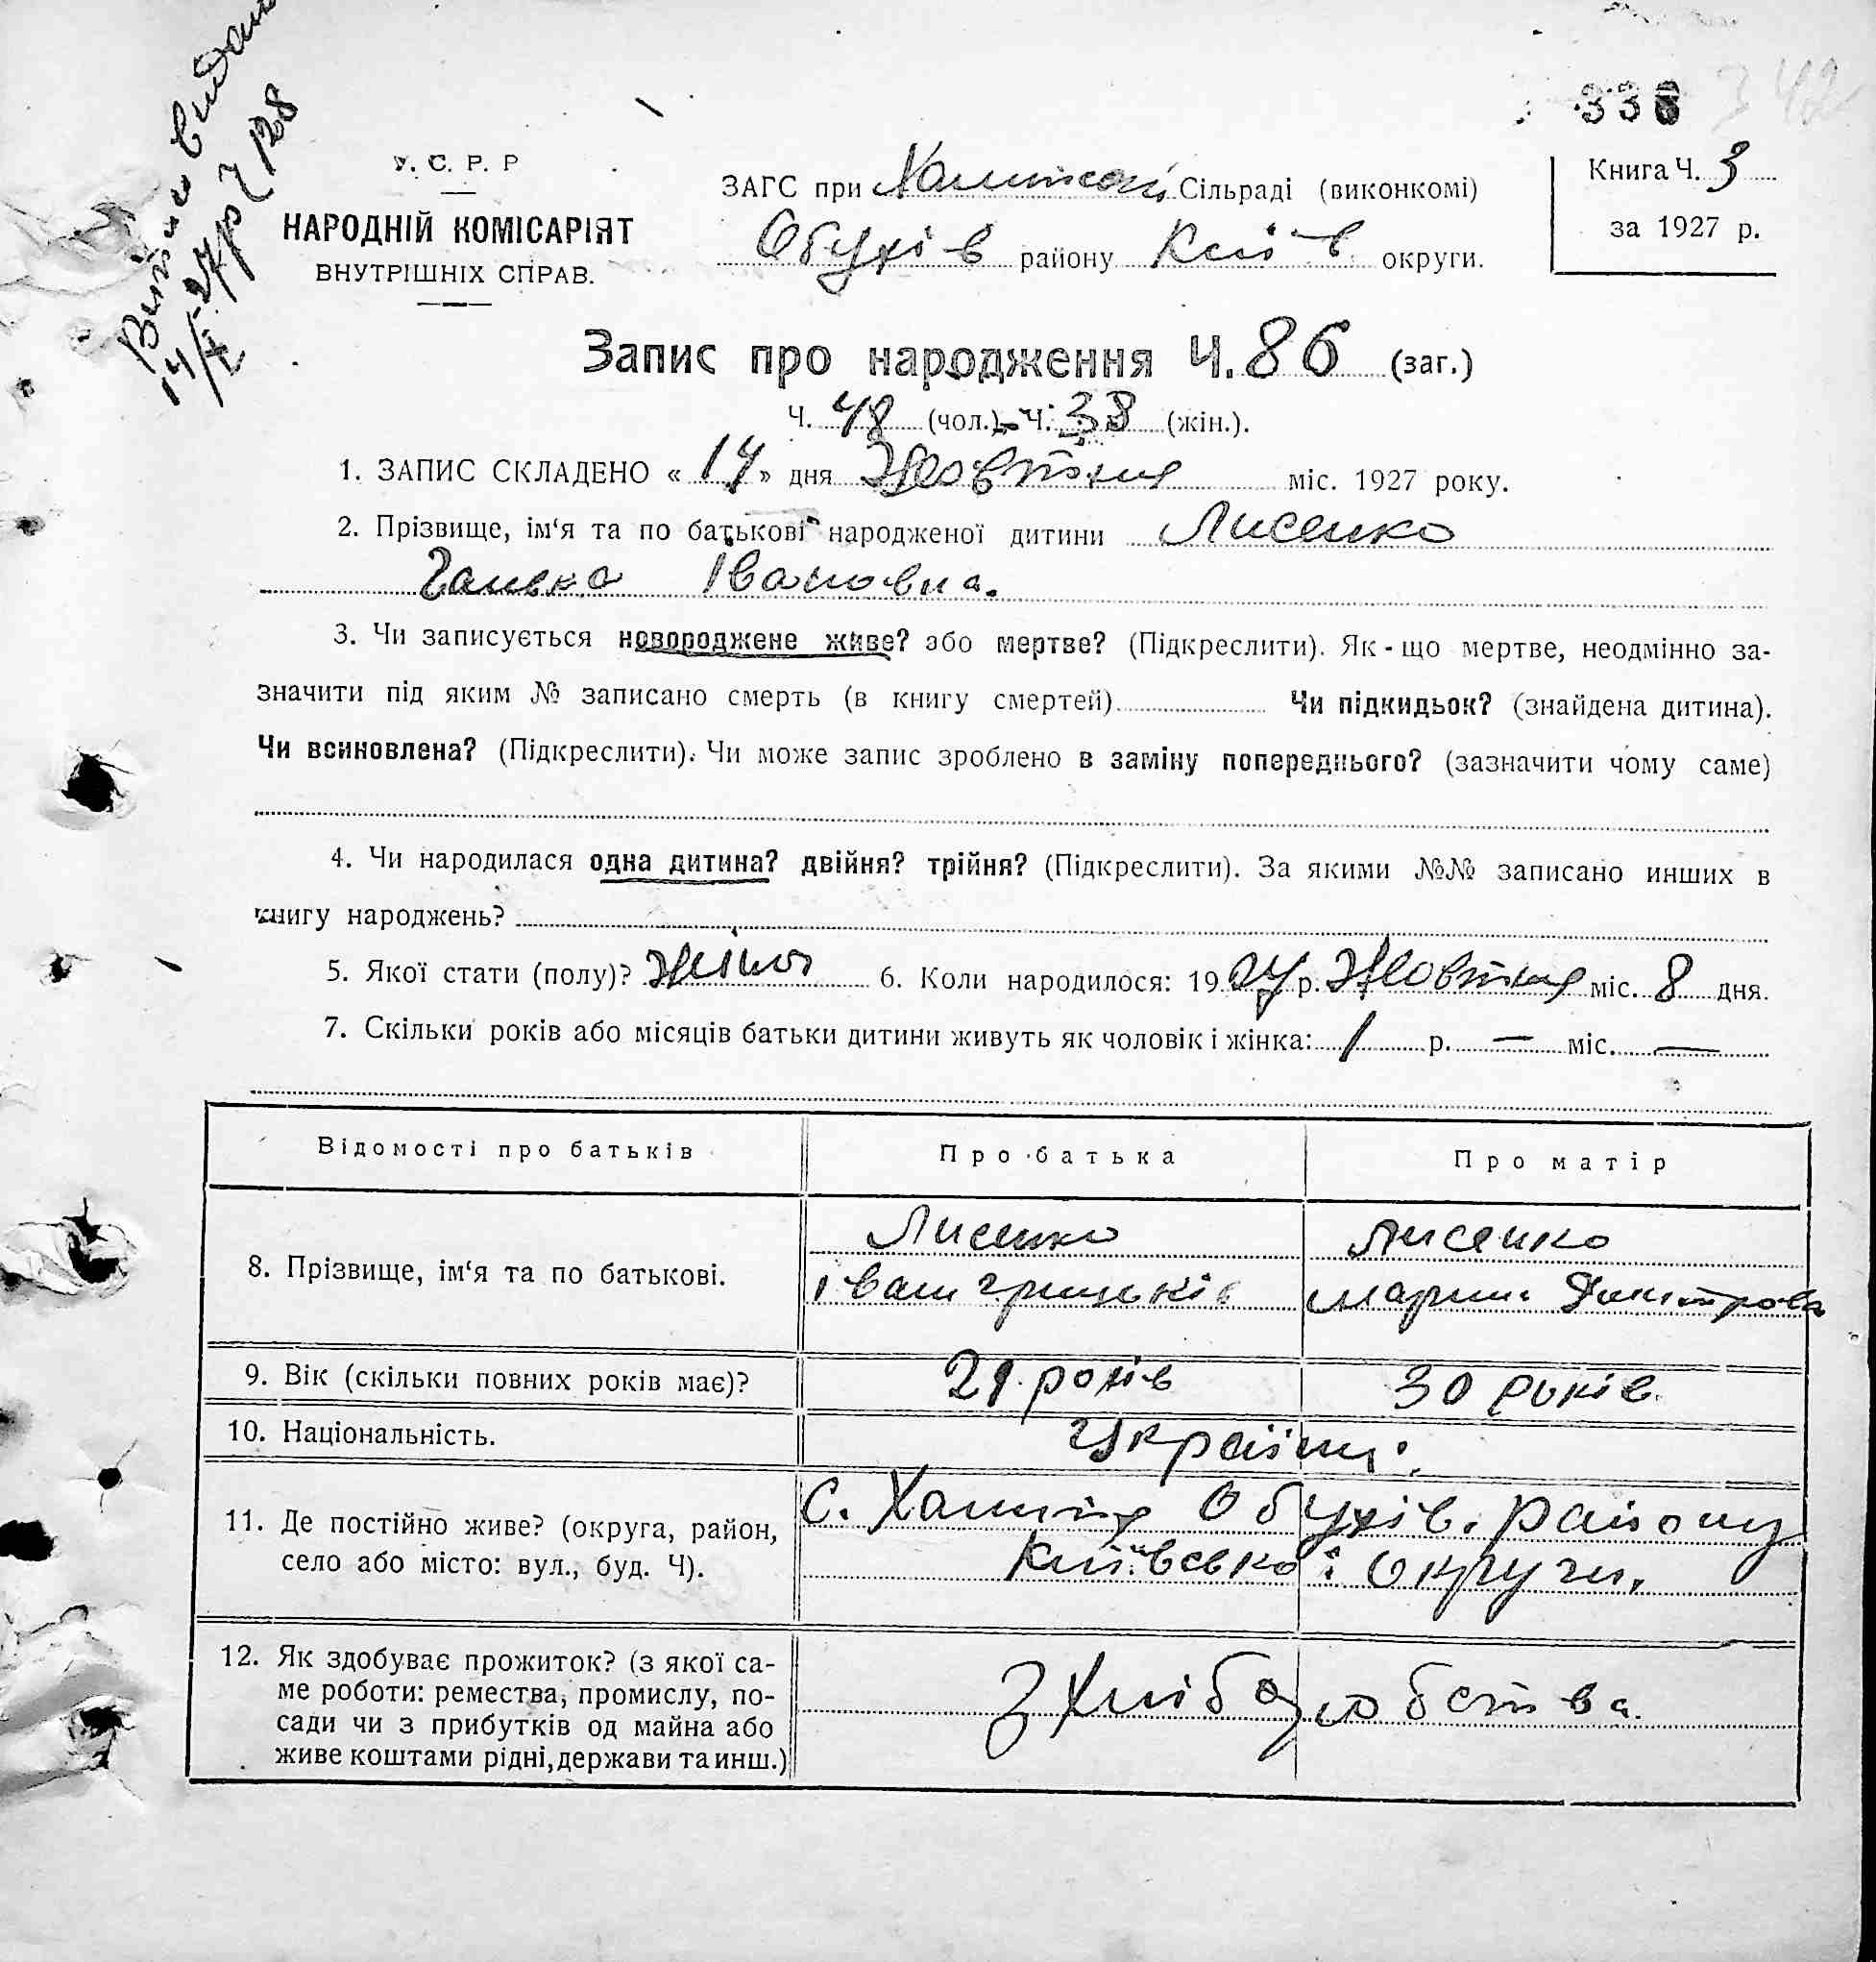 Витяг видано
14/X-27 р Ч 128
338 342
У. С. Р. Р
НАРОДНІЙ КОМІСАРІЯТ
ВНУТРІШНІХ СПРАВ.
ЗАГС при Халипській Сільраді (виконкомі)
Обухів району Київ округи.
Книга Ч. 3
за 1927 р.
Запис про народження Ч. 86 (заг.)
Ч. 48 (чол.), Ч. 38 (жін.).
1. ЗАПИС СКЛАДЕНО «14» дня Жовтня міс. 1927 року.
2. Прізвище, ім‘я та по батькові народженої дитини Лисенко
Ганька Івановна.
3. Чи записується новороджене живе? або мертве? (Підкреслити). Як-що мертве, неодмінно за-
значити під яким № записано смерть (в книгу смертей) Чи підкидьок? (знайдена дитина).
Чи всиновлена? (Підкреслити). Чи може запис зроблено в заміну попереднього? (зазначити чому саме)
4. Чи народилася одна дитина? двійня? трійня? (Підкреслити). За якими №№ записано инших в
книгу народжень?
5. Якої стати (полу)? Жіноч 6. Коли народилося: 1927 р. Жовтня міс. 8 дня.
7. Скільки років або місяців батьки дитини живуть як чоловік і жінка: 1 р. — міс. —
Відомості про батьків Про батька Про матір
8. Прізвище, ім‘я та по батькові. Лисенко Лисенко
Іван Грицьків Марина Димитрова
9. Вік (скільки повних років має)? 29 років 30 років.
10. Національність. Українці.
11. Де постійно живе? (округа, район, с. Халипя Обухів. району
село або місто: вул., буд. Ч). Київської округи.
12. Як здобуває прожиток? (з якої са-
ме роботи: ремества, промислу, по-
сади чи з прибутків од майна або
живе коштами рідні, держави та инш.)
З Хлібаробства.